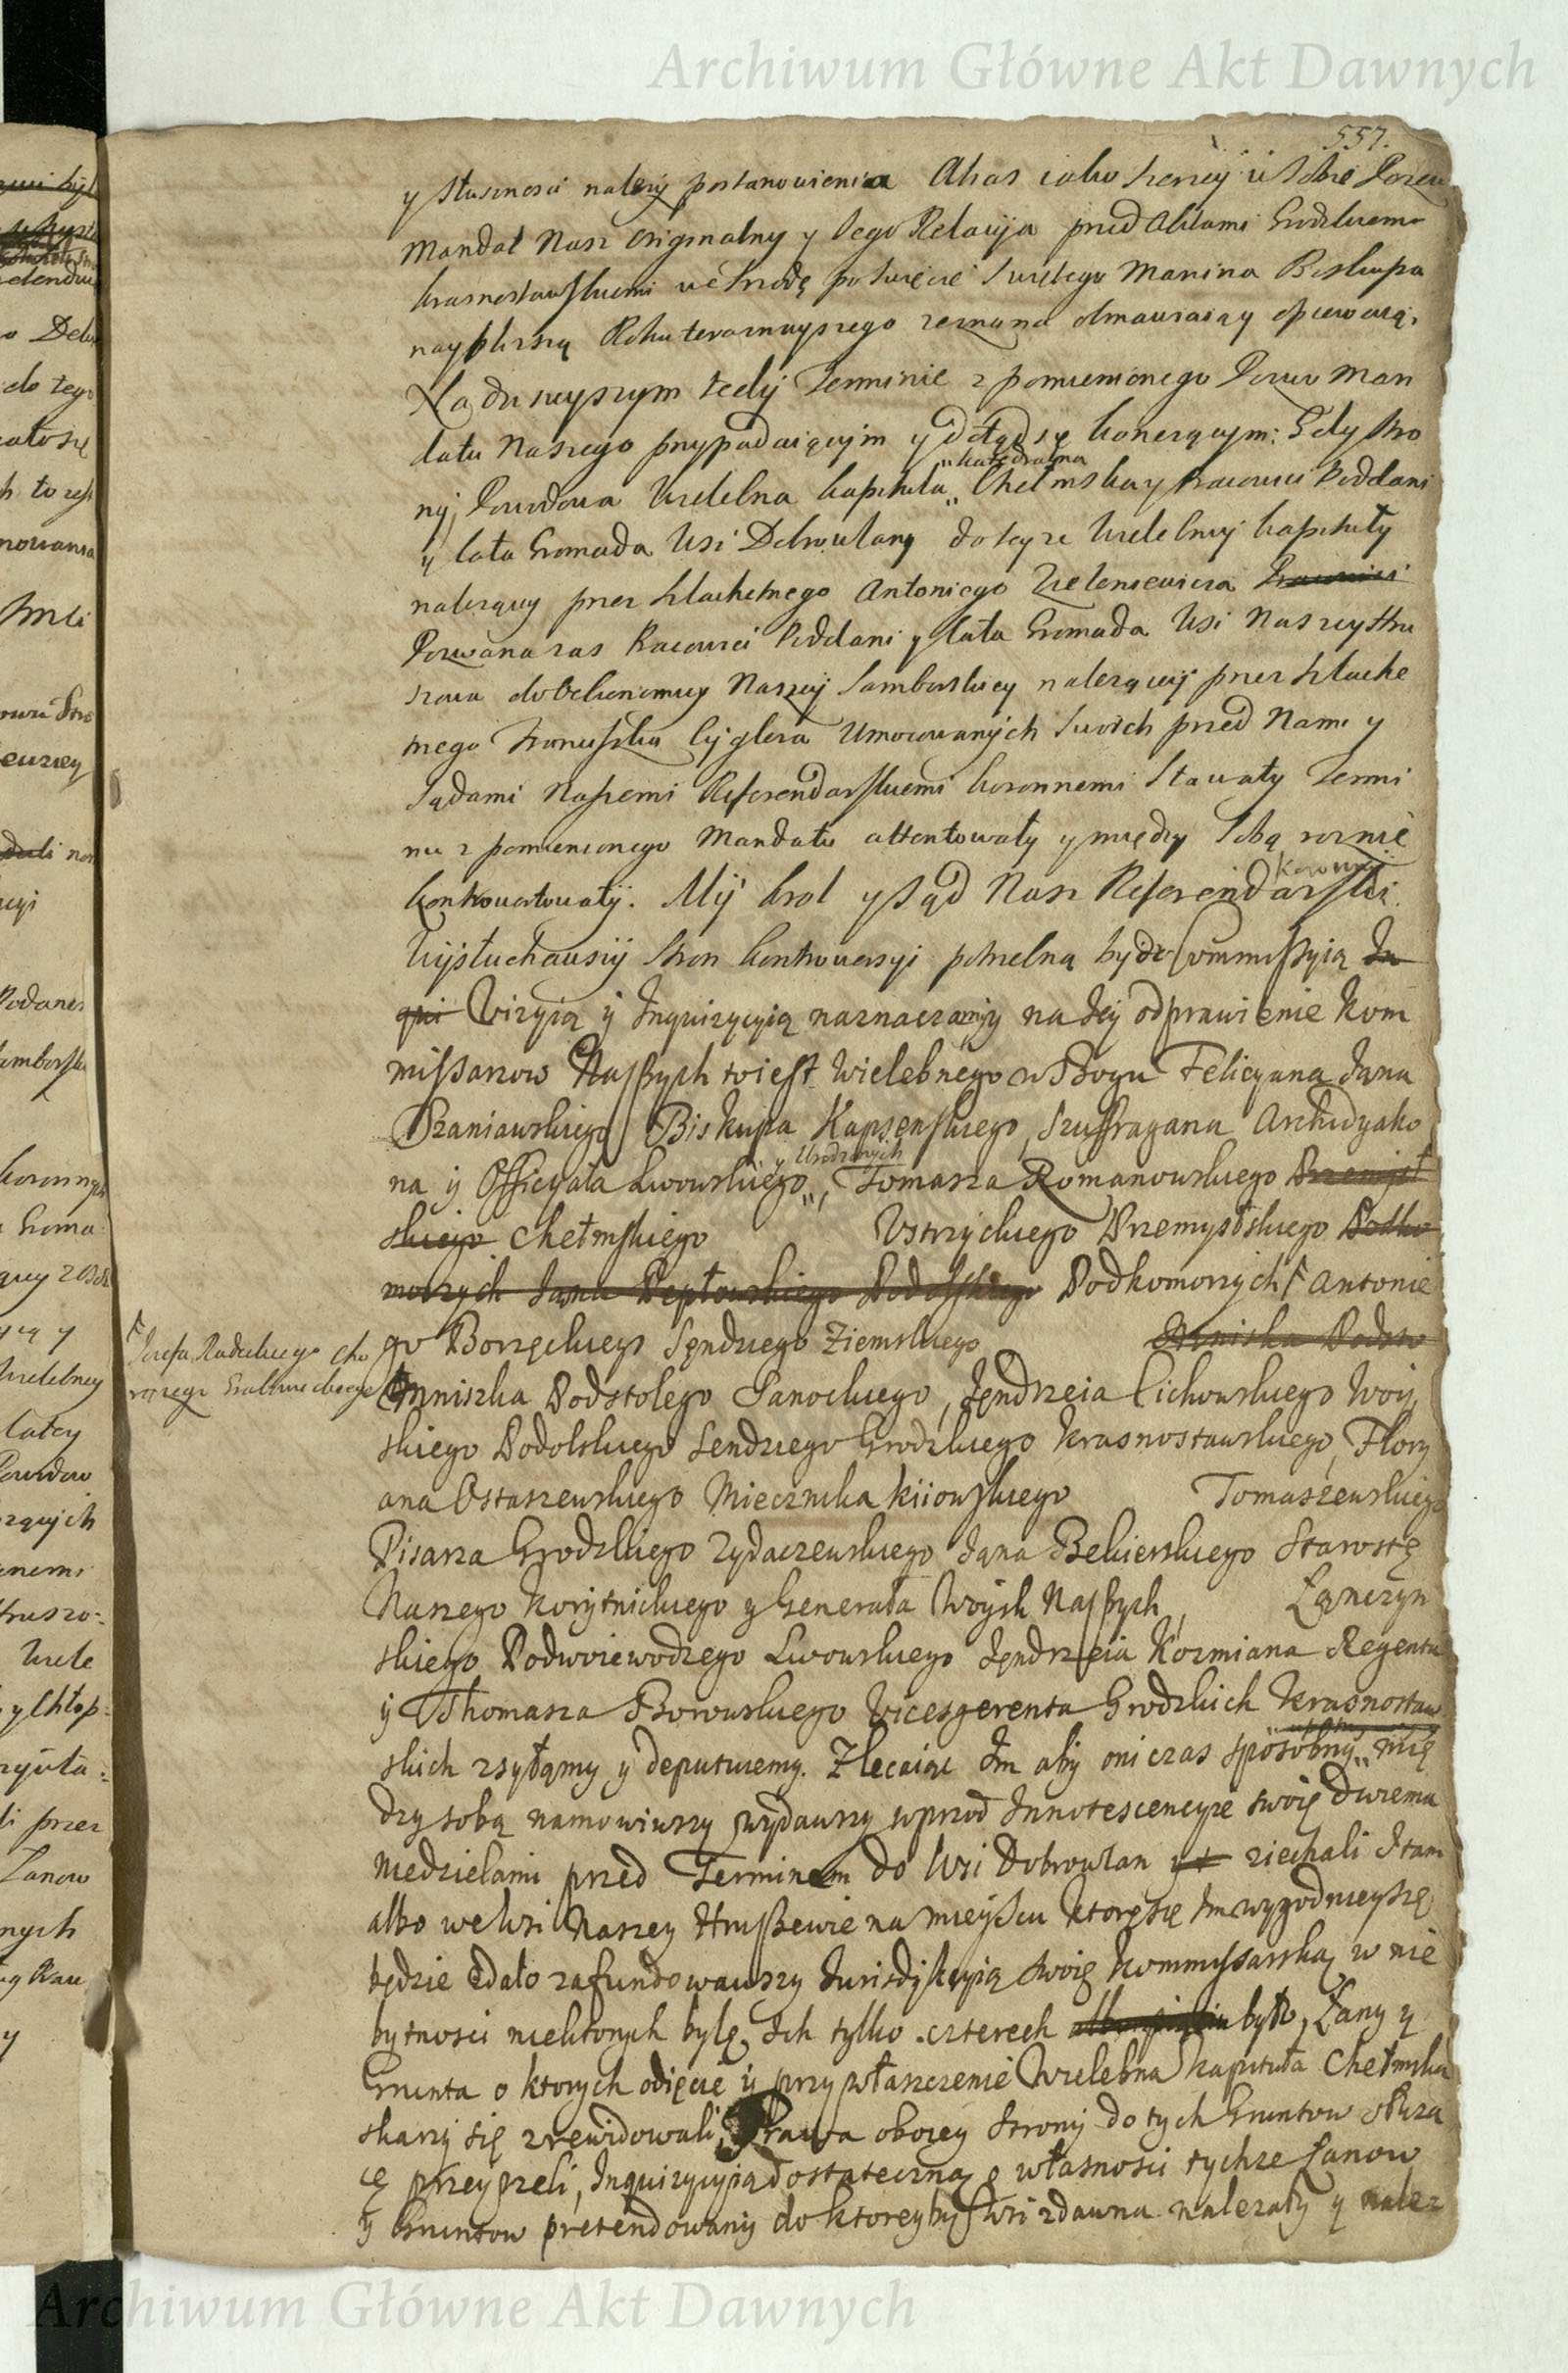 Archiwum Główne Akt Dawnych
557.
y słusznosci należy postanowienia Aktas iako szerzey w sobie Pozew
Mandat Nasz Originalny y Iego Relacyja przed Aktami Grodzkiemi
krasnostawskiemi we srodę po swięcie Swiętego Marcina Biskupa
naypierszą Roku teraznieyszego zeznana obmawiaią y opiewaią.
Na dzisieyszym tedy Terminie z pomienionego Pozwu Man
datu Naszego przypadaiącym y dotąd się konczącym: Gdy stro
katedralna
ny, Powodowa Wielebna kapituła Chełmska y Pracowici Poddani
y cała Gromada Wsi Dobrowlany do teyze Wielebney kapituły
należący przez szlachetnego Antoniego Zieleniewicza
Pozwana zas Pracowici Poddani y cała Gromada Wsi Naszey Hru
szowa do Oekonomiey Naszey Samborskiey należącey przez szlache
tnego Franciszka Cyglera Umocowanych swoich przed Nami y
Sądami Naszemi Referendarskiemi koronnemi Stawały Termi
nu z pomienionego Mandatu attentowały y między Sobą roznie
kontrowertowały. My krol y Sąd Nasz Referendarski
koronny
Wysłuchawszy stron kontrowersyi potrzebną bydz Commissyią In
qui Wizyią y Inquizycyią naznaczamy na Iey odprawienie Kom
missarzow Naszych to iest Wielebnego w Bogu Felicyana Jana
Szaniawskiego Biskupa Kapsenskiego, Suffragana Archidyako
y Urodzonych
na y Officyała Lwowskiego, Tomasza Romanowskiego Przemysl
skiego Chełmskiego Ustrzyckiego Przemyslskiego Podko
morzych Podkomorzych Antonie
Jozefa Radeckiego cho
go Borzęckiego Sędziego Ziemskiego
rązego Grabowieckiego
Mniszka Podstolego Sanockiego, Jędrzeia Cichowskiego Woy
skiego Podolskiego Sendziego Grodzkiego Krasnostawskiego, Flory
ana Ostaszewskiego Miecznika kiiowskiego Tomaszewskiego
Pisarza Grodzkiego Zydaczewskiego Jana Bekierskiego Starostę
Naszego Korytnickiego y Generała Woysk Naszych, Łączyn
skiego Podwoiewodzego Lwowskiego Jędrzeia Kozmiana Regenta
y Thomasza Borowskiego Vicesgerenta Grodzkich Krasnostaw
skich zsyłamy y deputuiemy. Zlecaiąc Im aby oni czas sposobny mię
dzy sobą namowiwszy wydawszy wprzod Innotescencyie swoię dwiema
niedzielami przed Terminem do Wsi Dobrowlan ziechali I tam
albo we Wsi Naszey Hruszewie na mieyscu ktore się Im wygodnieysze
będzie zdało zafundowawszy Iurisdykcyią swoię Kommissarską w nie
bytnosci niektorych byle Ich tylko czterech było, Łany y
Grunta o ktorych odięcie y przywłaszczenie Wielebna kapituła Chełmska
skarzy się zrewidowali, Prawa oboiey strony do tych Gruntow słuza
cę przeyrzeli, Inquizycyią dostateczną o własnosci tychze Łanow
y Gruntow pretendowany do ktoreyby Wsi zdawna nalezały y nalez
Archiwum Główne Akt Dawnych